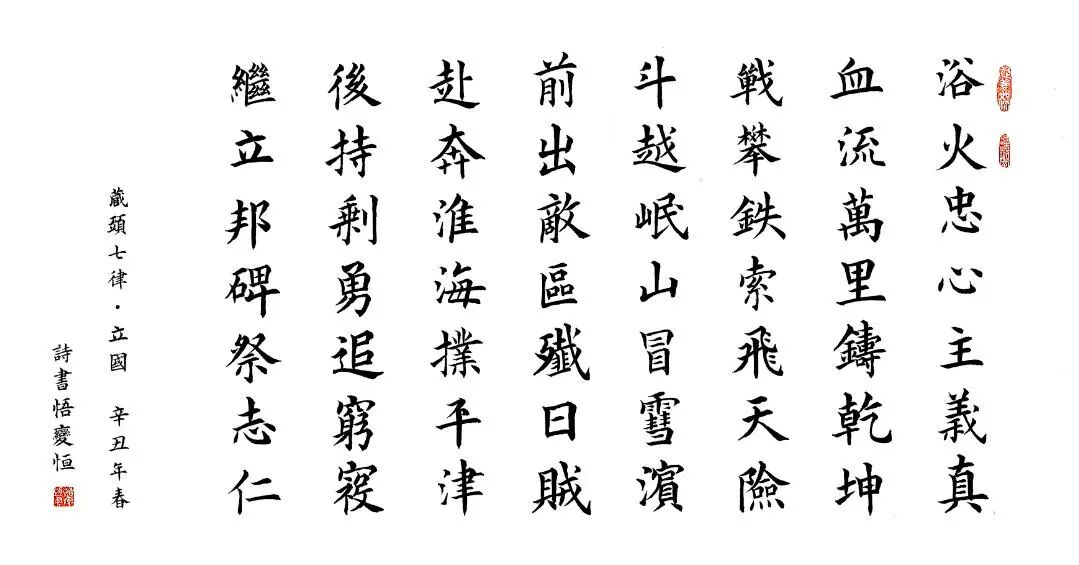 浴火忠心主義真
血流萬里鑄乾坤
戰攀鉄索飛天險
斗越岷山冒雪濱
前出敵區殲日賊
赴奔淮海撲平津
後持剩勇追窮寇
繼立邦碑祭志仁
蔵頭七律·立國 辛丑年春
詩書悟變恒